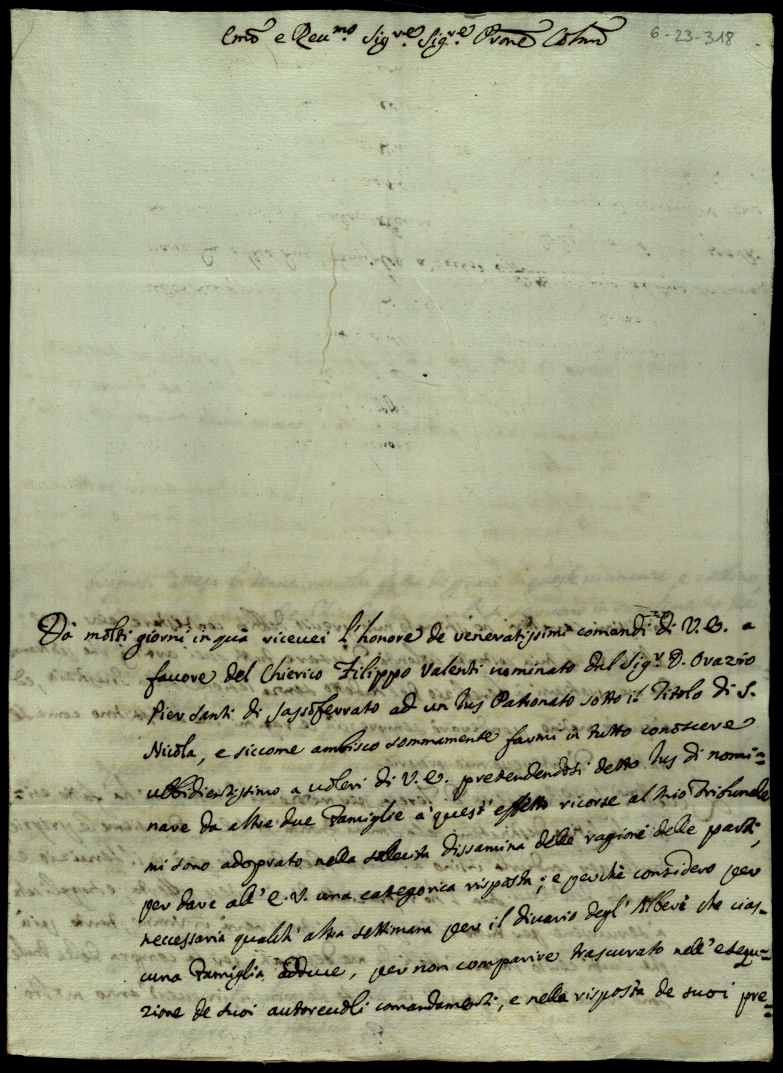 Emo e Reumo Sigre Sigre Prone Colmo
6-23-318
Dà molti giorni in quà riceuei l'honore de veneratissimi comandi di V.E. a
fauore del Chierico Filippo Valenti nominato dal Sigr D. Orazio
Pier Santi di Sassoferrato ad un Jus Patronato sotto il Titolo di S.
Nicola, e siccome ambisco sommamente farmi in tutto conoscere
ubbidientissimo a uoleri di V.E. pretendendosi detto Jus di nomi=
nare da altre due Famiglie a quest'effetto ricorse al mio Tribunale
mi sono adoprato nella sollecita dissamina delle ragioni delle parti,
per dare all'E.V. una categorica risposta; e perchè considero per
neccessaria qualch'altra settimana per il diuario degl'Alberi che cias=
cuna Famiglia adduce, per non comparire trascurato nell'esequ=
zione de suoi autoreuoli comandamenti, e nella risposta de suoi pre=